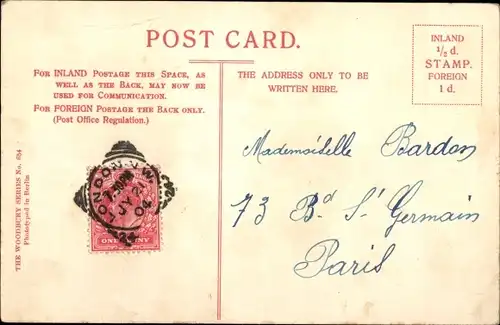 POST CARD.
FOR INLAND POSTAGE THIS SPACE, AS
WELL AS THE BACK, MAY NOW BE
USED FOR COMMUNICATION.
FOR FOREIGN POSTAGE THE BACK ONLY.
(Post Office Regulation.)
THE ADDRESS ONLY TO BE
WRITTEN HERE.
INLAND
½ d.
STAMP.
FOREIGN
1 d.
THE WOODBURY SERIES No. 654
Photolyped in Berlin
LONDON. N.W
JY 2
04
ONE PENNY
Mademoiselle Bardon
73 Bd St Germain
Paris